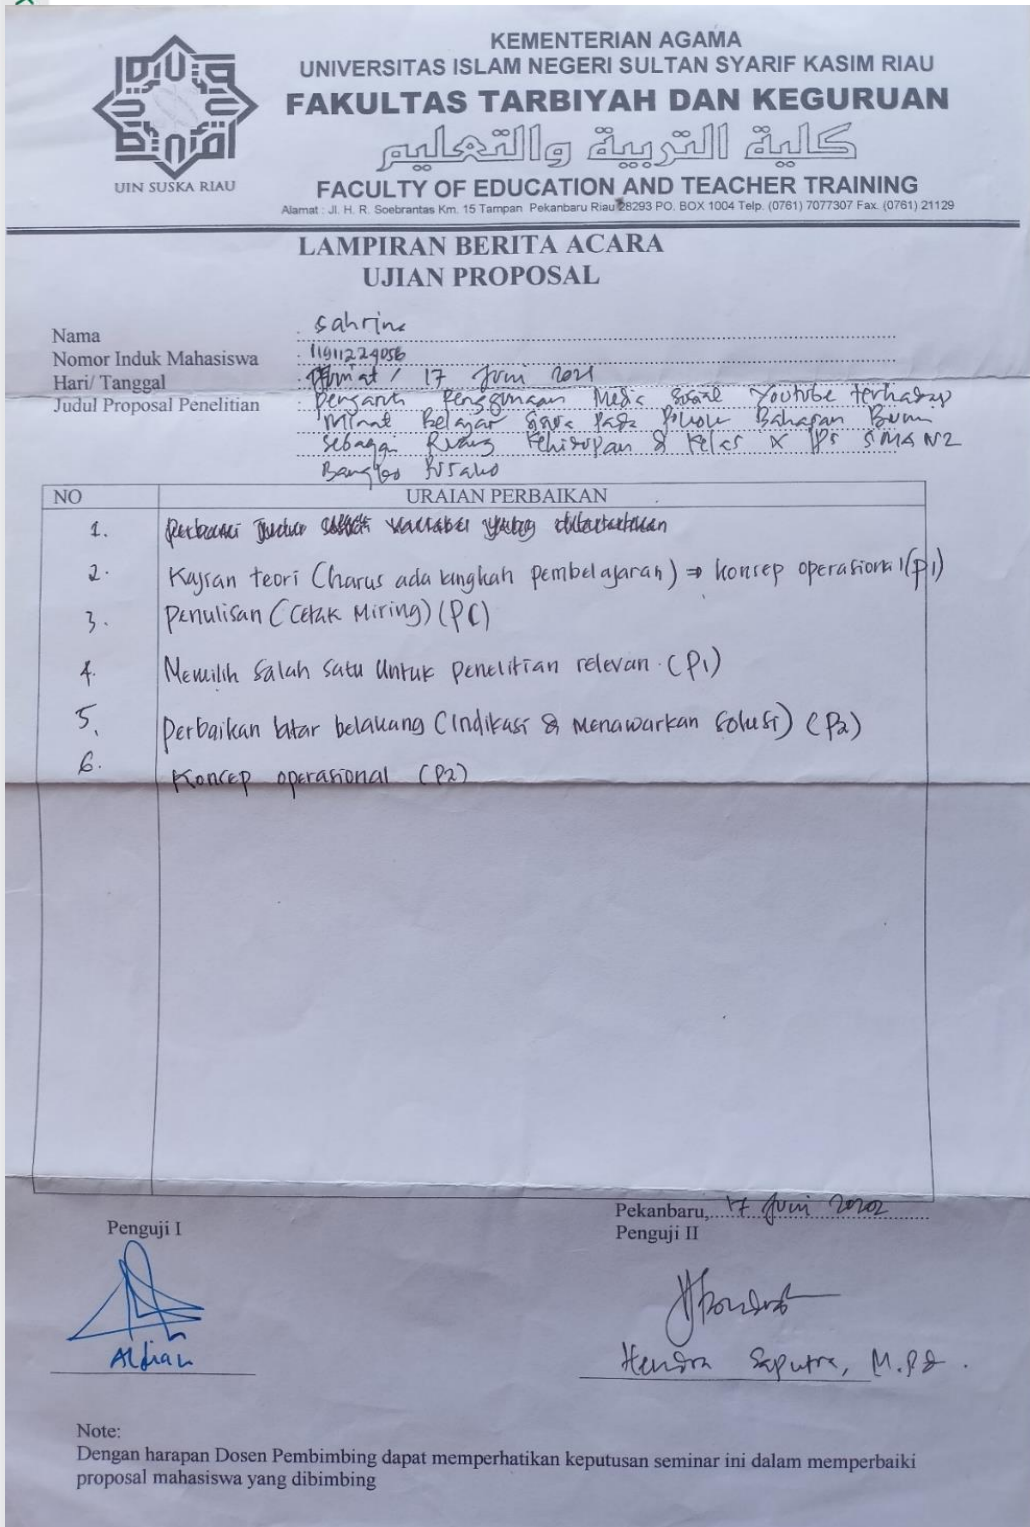 UIN SUSKA RIAU
KEMENTERIAN AGAMA
UNIVERSITAS ISLAM NEGERI SULTAN SYARIF KASIM RIAU
FAKULTAS TARBIYAH DAN KEGURUAN
كلية التربية والتعليم
FACULTY OF EDUCATION AND TEACHER TRAINING
Alamat : Jl. H. R. Soebrantas Km. 15 Tampan Pekanbaru Riau 28293 PO. BOX 1004 Telp. (0761) 7077307 Fax. (0761) 21129
LAMPIRAN BERITA ACARA
UJIAN PROPOSAL
Nama : Sahrina
Nomor Induk Mahasiswa : 11911224056
Hari/ Tanggal : Jum'at / 17 Juni
Judul Proposal Penelitian : Pengaruh Penggunaan Media Sosial Youtube terhadap
Minat Belajar Siswa Pada Pokok Bahasan Bumi
Sebagai Ruang Kehidupan di Kelas X IPS SMA N2
Bangko Pusako
NO URAIAN PERBAIKAN
1.
2. Kajian teori (harus ada langkah pembelajaran) ⇒ konsep operasional (P1)
3. Penulisan (Cetak Miring) (P1)
4. Memilih salah satu untuk penelitian relevan. (P1)
5. Perbaikan latar belakang (Indikasi & Menawarkan Solusi) (P2)
6. Koncep operasional (P2)
Pekanbaru, 17 Juni 2022
Penguji I
Penguji II
Aldian
Hendra Saputra, M.Pd.
Note:
Dengan harapan Dosen Pembimbing dapat memperhatikan keputusan seminar ini dalam memperbaiki
proposal mahasiswa yang dibimbing